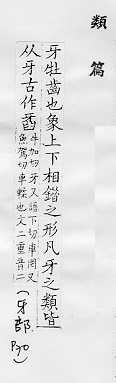 類篇
牙牡齒也象上下相錯之形凡牙之類皆
从牙古作𤘈牛加切牙又語下切車罔又
魚駕切車輮也文二重音二
(牙部 P70)